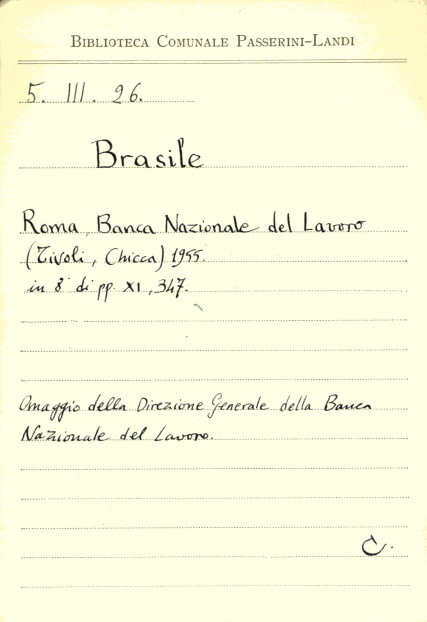 BIBLIOTECA COMUNALE PASSERINI-LANDI
5. III. 26.
Brasile
Roma, Banca Nazionale del Lavoro
(Tivoli, Chicca) 1955.
in 8° di pp. XI, 347.
Omaggio della Direzione Generale della Banca
Nazionale del Lavoro.
C.